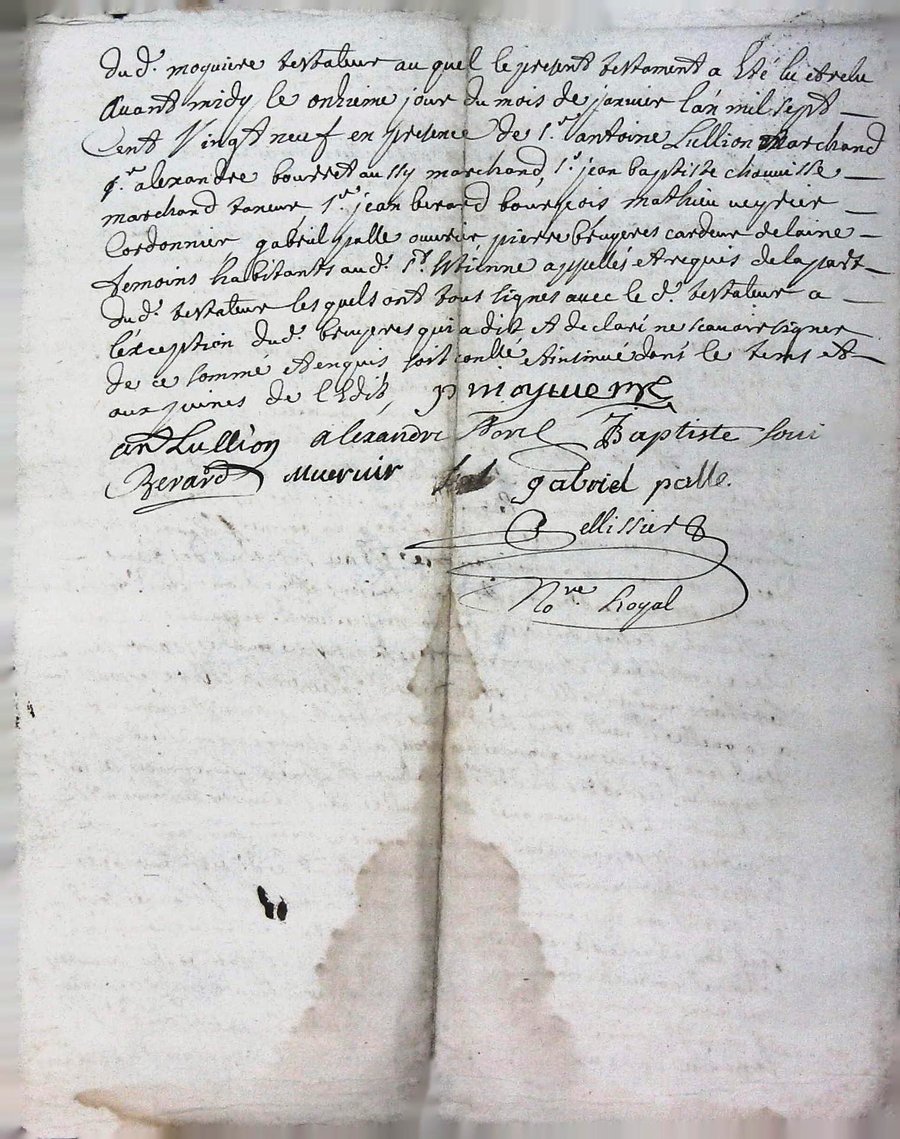 du d. moquiere testateur au quel le present testament a Eté lu et relu
avant midy le onzieme jour du mois de janvier l'an mil sept
Cent Vingt neuf en presence de s.r antoine Lullion marchand
s.r alexandre bourret aussy marchand, s.r jean baptiste
marchand taneur, s.r jean berard bourgeois mathieu veyrier
Cordonnier gabriel palle ouvrier pierre brugeres cardeur de laine
temoins habitants aud. St. Etienne appellés et requis de la part
du d. testateur lesquels ont tous signes avec le d. testateur a
l'exception dud. brugeres qui a dit et declaré ne scavoir signer
de ce sommé et enquis, soit conllé et insinué dans le tems et
aux peines de l'Edit, moquiere
ant Lullion alexandre Baptiste
Berard gabriel palle.
Pellissier
No.re Royal